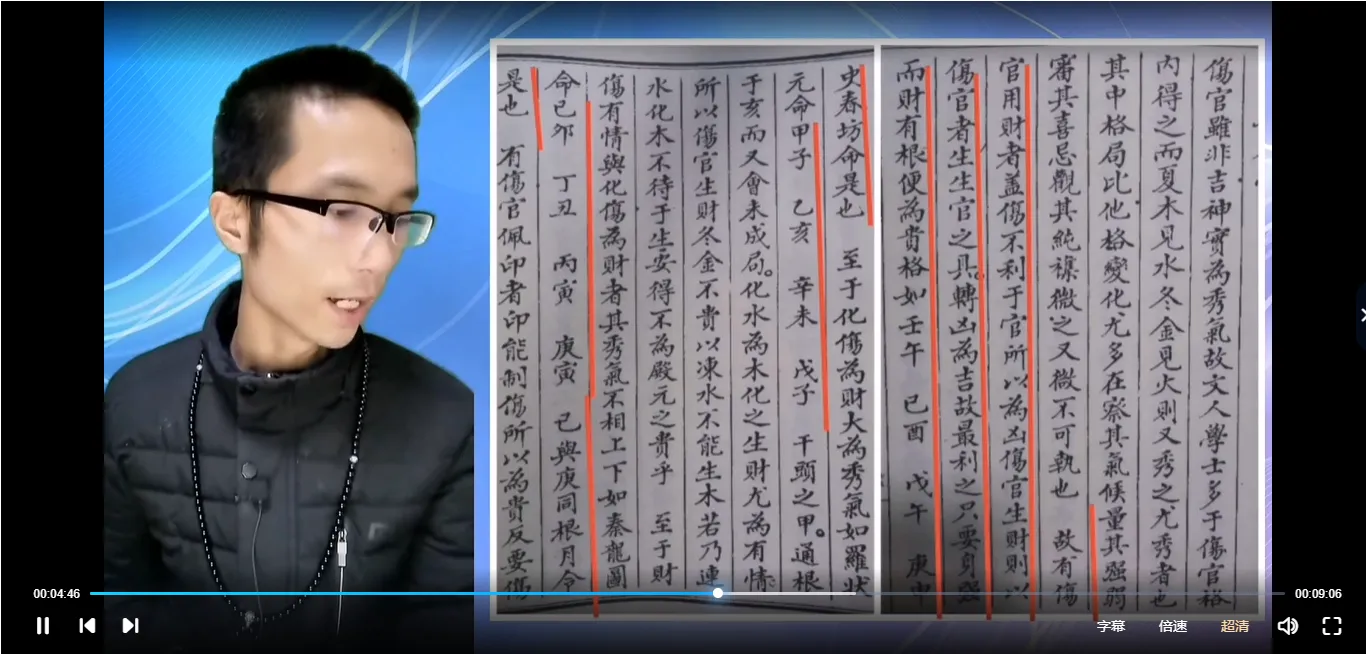 傷官雖非吉神實為秀氣故文人學士多于傷官格
內得之而夏木見水冬金見火則又秀之尤秀者也
其中格局比他格變化尤多在察其氣候量其强弱
審其喜忌觀其純襍微之又微不可執也 故有傷
官用財者蓋傷不利于官所以為凶傷官生財則以
傷官者生生官之具。轉凶為吉故最利之只要身强
而財有根便為貴格如壬午 己酉 戊午 庚申
史春坊命是也 至于化傷為財大為秀氣如羅狀
元命甲子 乙亥 辛未 戊子 干頭之甲。通根
于亥而又會未成局。化水為木化之生財尤為有情
所以傷官生財冬金不貴以凍水不能生木若乃連
水化木不待于生安得不為殿元之貴乎 至于財
傷有情與化傷為財者其秀氣不相上下如秦龍圖
命己卯 丁丑 丙寅 庚寅 己與庚同根月令
是也 有傷官佩印者印能制傷所以為貴反要傷
00:04:46
00:09:06
字幕 倍速 超清